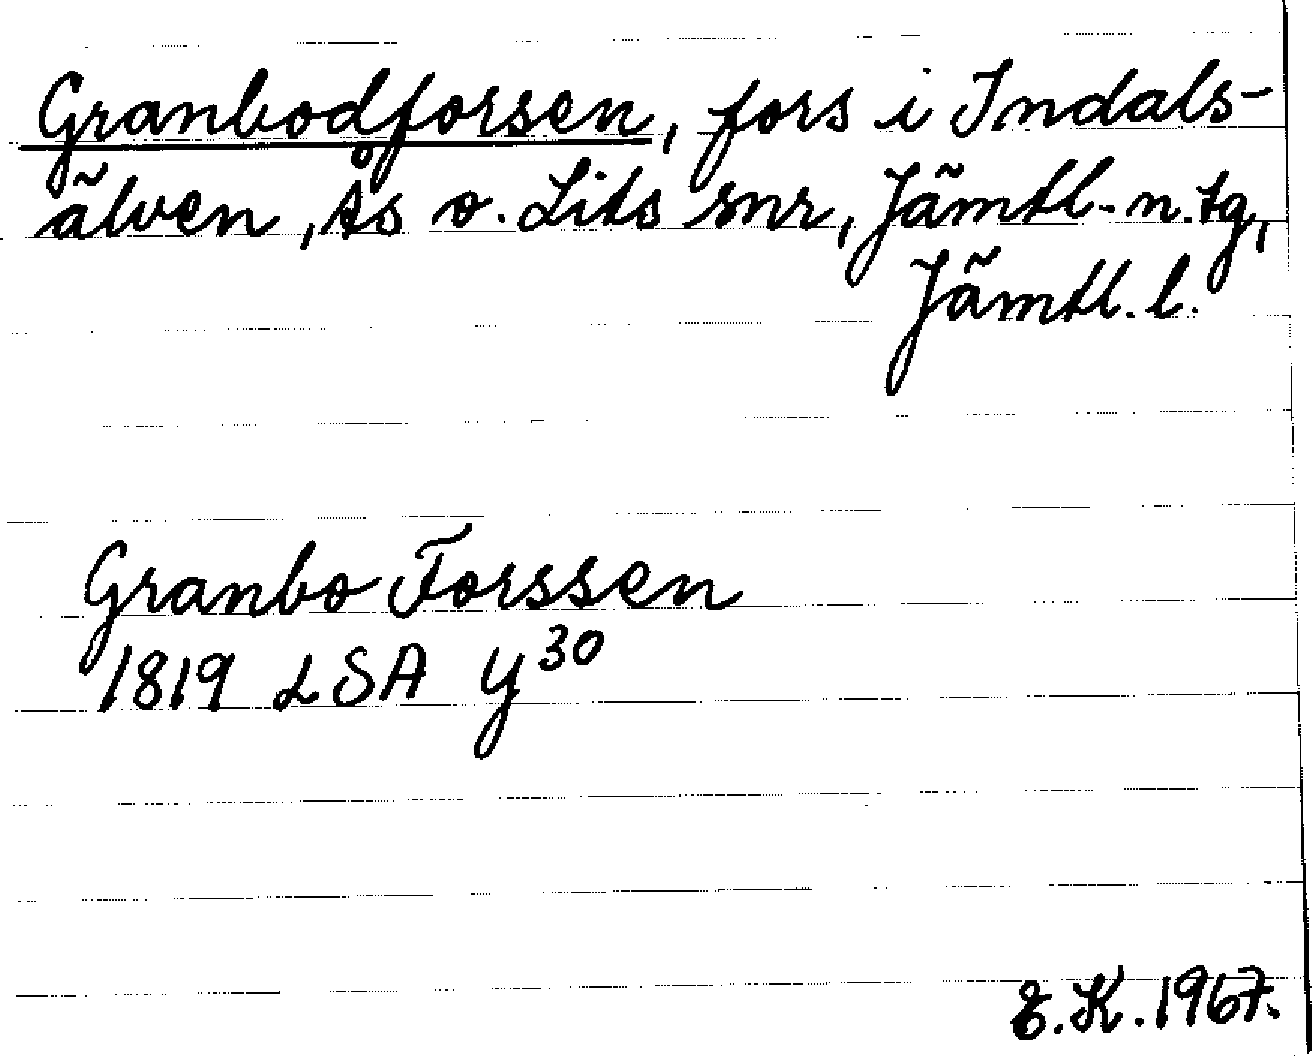 Granbodforsen, fors i Indals-
älven, Ås o. Lits snr, Jämtl. n. tg,
Jämtl. l.
Granbo Forssen
1819 LSA Y30
E.K. 1967.